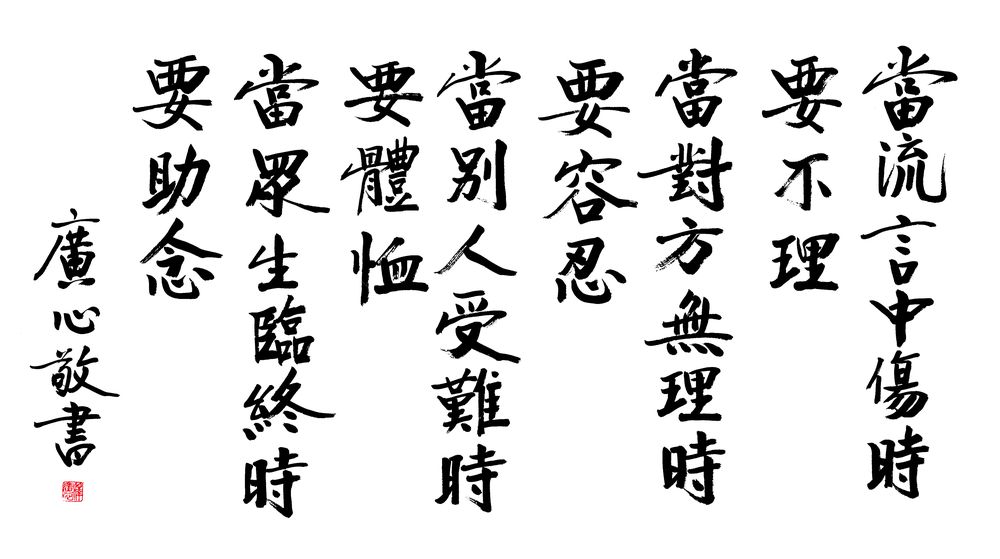 當流言中傷時
要不理
當對方無理時
要容忍
當別人受難時
要體恤
當眾生臨終時
要助念
廣心敬書